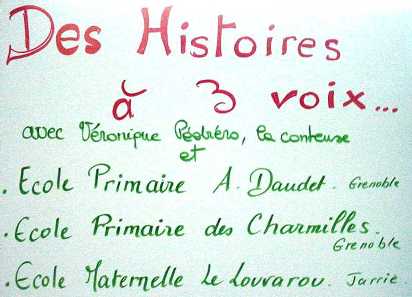 Des Histoires
à 3 voix...
avec Véronique Pédréro, la conteuse
et
. Ecole Primaire A. Daudet. Grenoble
. Ecole Primaire des Charmilles.
Grenoble
. Ecole Maternelle Le Louvarou. Jarrie.